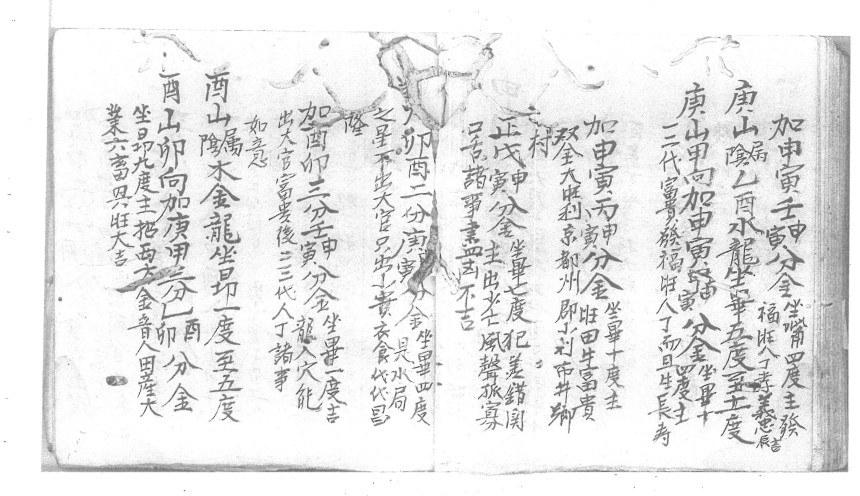 加申寅壬申寅分金坐觜四度主發
福旺人丁孝義忠良吉
庚山屬陰乙酉水龍坐畢五度至十二度
庚山甲向加申寅庚申寅分金坐畢十四度主
二三代富貴發福旺人丁而且生長寿
加申寅丙申寅分金坐畢十度主
旺田生富貴
双全大旺利京都州郡小利市井鄉
村
正戊申寅分金坐畢七度犯差錯関
主出少亡風聲孤寡
口舌諸事書凶不吉
卯酉二分庚寅分金坐畢四度
是水局
之星不出大官只出小貴衣食代代昌
隆
加酉卯三分壬申寅分金坐畢一度吉
龍入穴能
出大官富貴後二三代人丁諸事
如意
酉山屬陰木金龍坐昴一度至五度
酉山卯向加庚甲三分乙酉卯分金
坐昴九度主招西方金音人田産大
業六畜興旺大吉